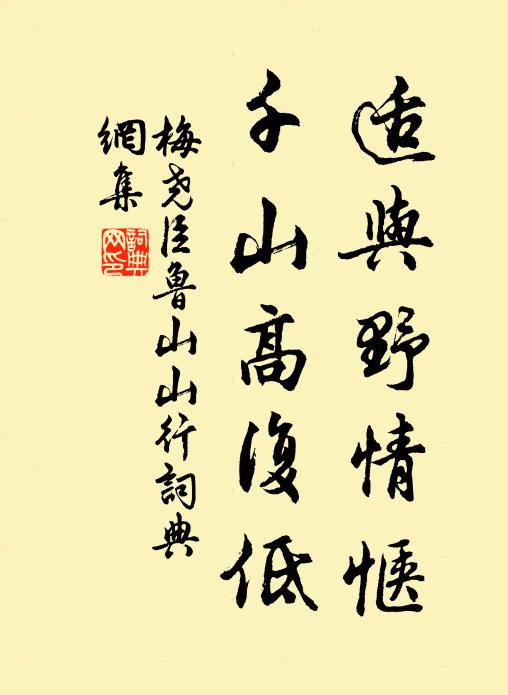 适與野情愜
千山高復低
梅尧臣魯山山行詞典
網集
詞典
网印